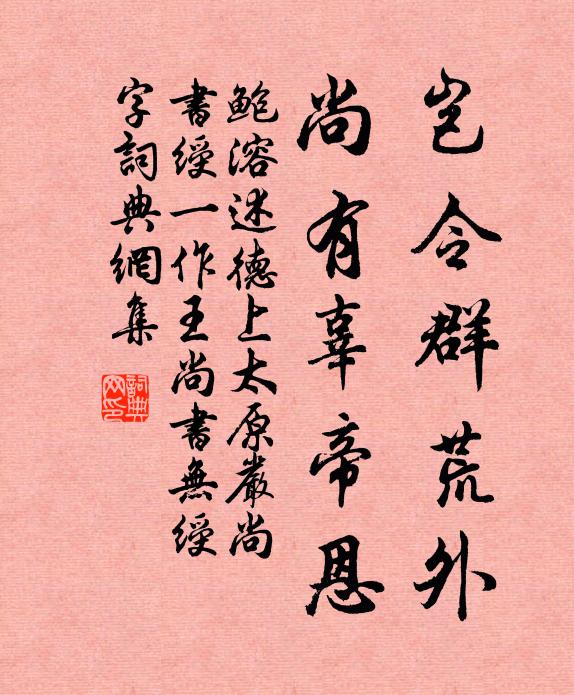 岂令群荒外
尚有辜帝恩
鲍溶述德上太原嚴尚
書綬一作王尚書無綬
字詞典網集
詞典
网印